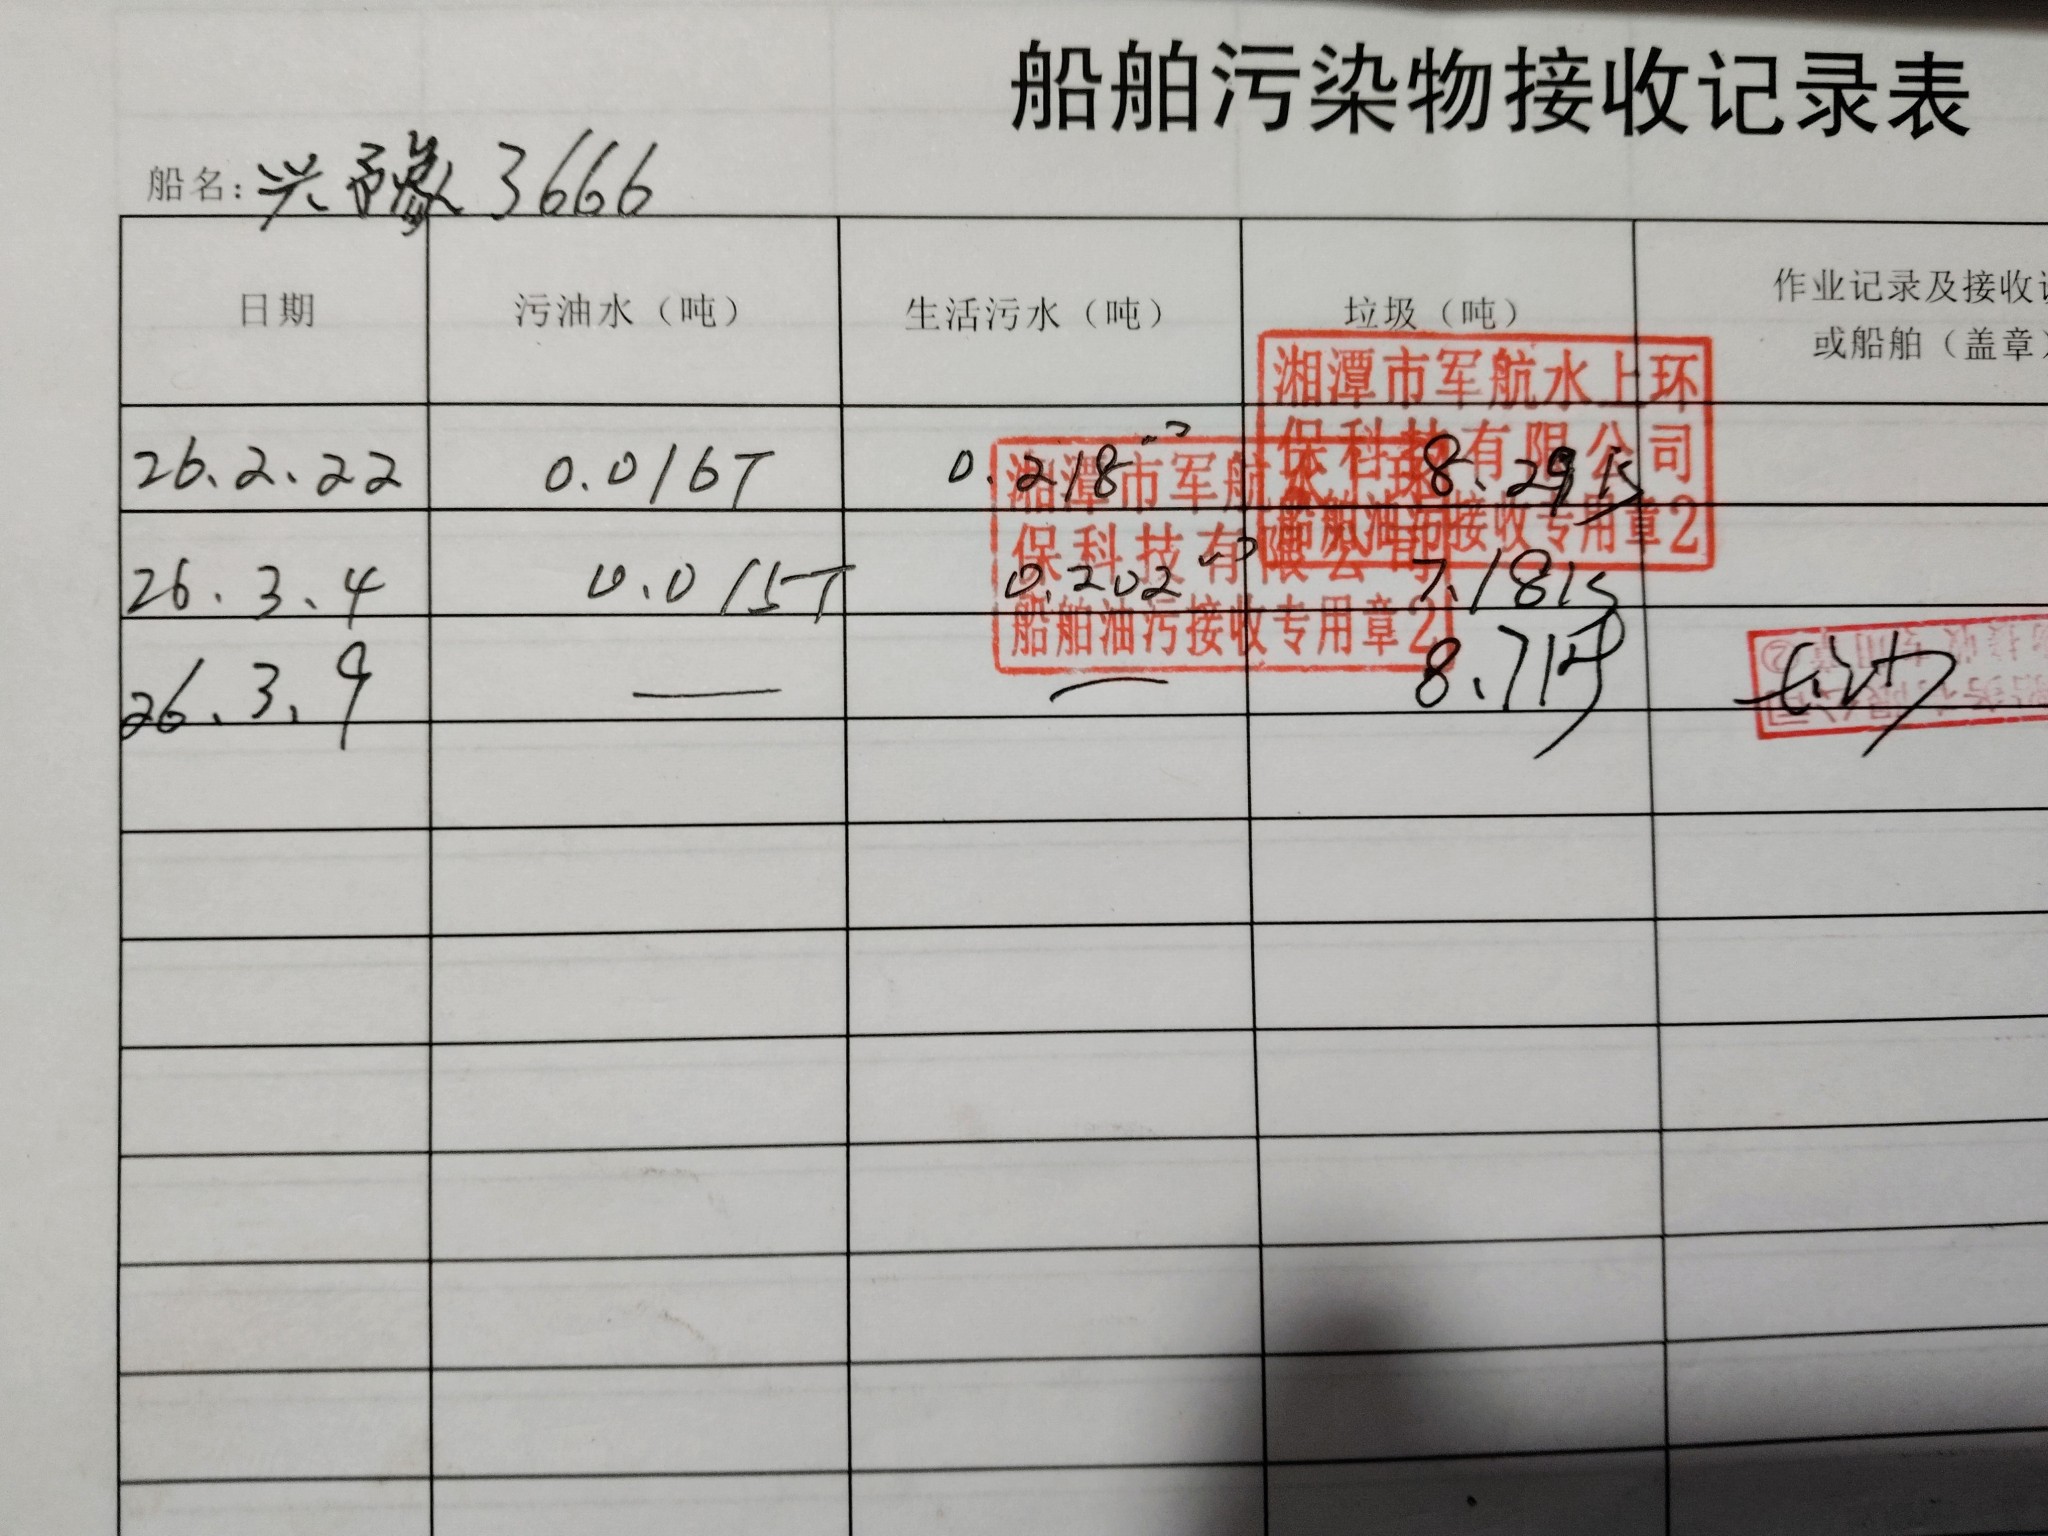 船舶污染物接收记录表
船名: 兴豫 3666
日期 污油水（吨） 生活污水（吨） 垃圾（吨） 作业记录及接收
或船舶（盖章）
湘潭市军航水上环
保科技有限公司
船舶油污接收专用章2
26.2.22 0.016T 0.218 8.29
湘潭市军航
保科技有限公司
船舶油污接收专用章2
26.3.4 0.015T 0.202 7.18
26.3.9 — — 8.71